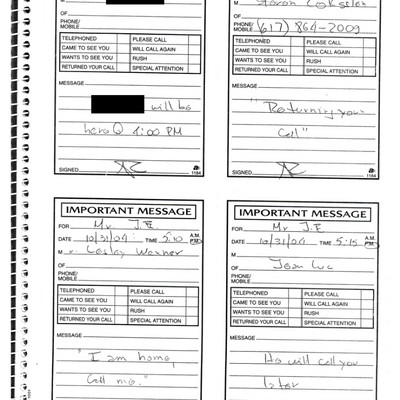 M
OF
PHONE/
MOBILE
TELEPHONED PLEASE CALL
CAME TO SEE YOU WILL CALL AGAIN
WANTS TO SEE YOU RUSH
RETURNED YOUR CALL SPECIAL ATTENTION
MESSAGE
will be
here @ 1:00 PM
SIGNED
1184
M
OF
PHONE/
MOBILE (617) 864-2009
TELEPHONED PLEASE CALL
CAME TO SEE YOU WILL CALL AGAIN
WANTS TO SEE YOU RUSH
RETURNED YOUR CALL SPECIAL ATTENTION
MESSAGE
"Returning your
call"
SIGNED
1184
IMPORTANT MESSAGE
FOR Mr. J.E.
DATE 10/31/04 TIME 5:10 A.M.
P.M.
M r. Lesley Wexner
OF
PHONE/
MOBILE
TELEPHONED PLEASE CALL
CAME TO SEE YOU WILL CALL AGAIN
WANTS TO SEE YOU RUSH
RETURNED YOUR CALL SPECIAL ATTENTION
MESSAGE
"I am home,
Call me."
IMPORTANT MESSAGE
FOR Mr J.E
DATE 10/31/04 TIME 5:15 A.M.
P.M.
M
OF Jean Luc
PHONE/
MOBILE
TELEPHONED PLEASE CALL
CAME TO SEE YOU WILL CALL AGAIN
WANTS TO SEE YOU RUSH
RETURNED YOUR CALL SPECIAL ATTENTION
MESSAGE
He will call you
later